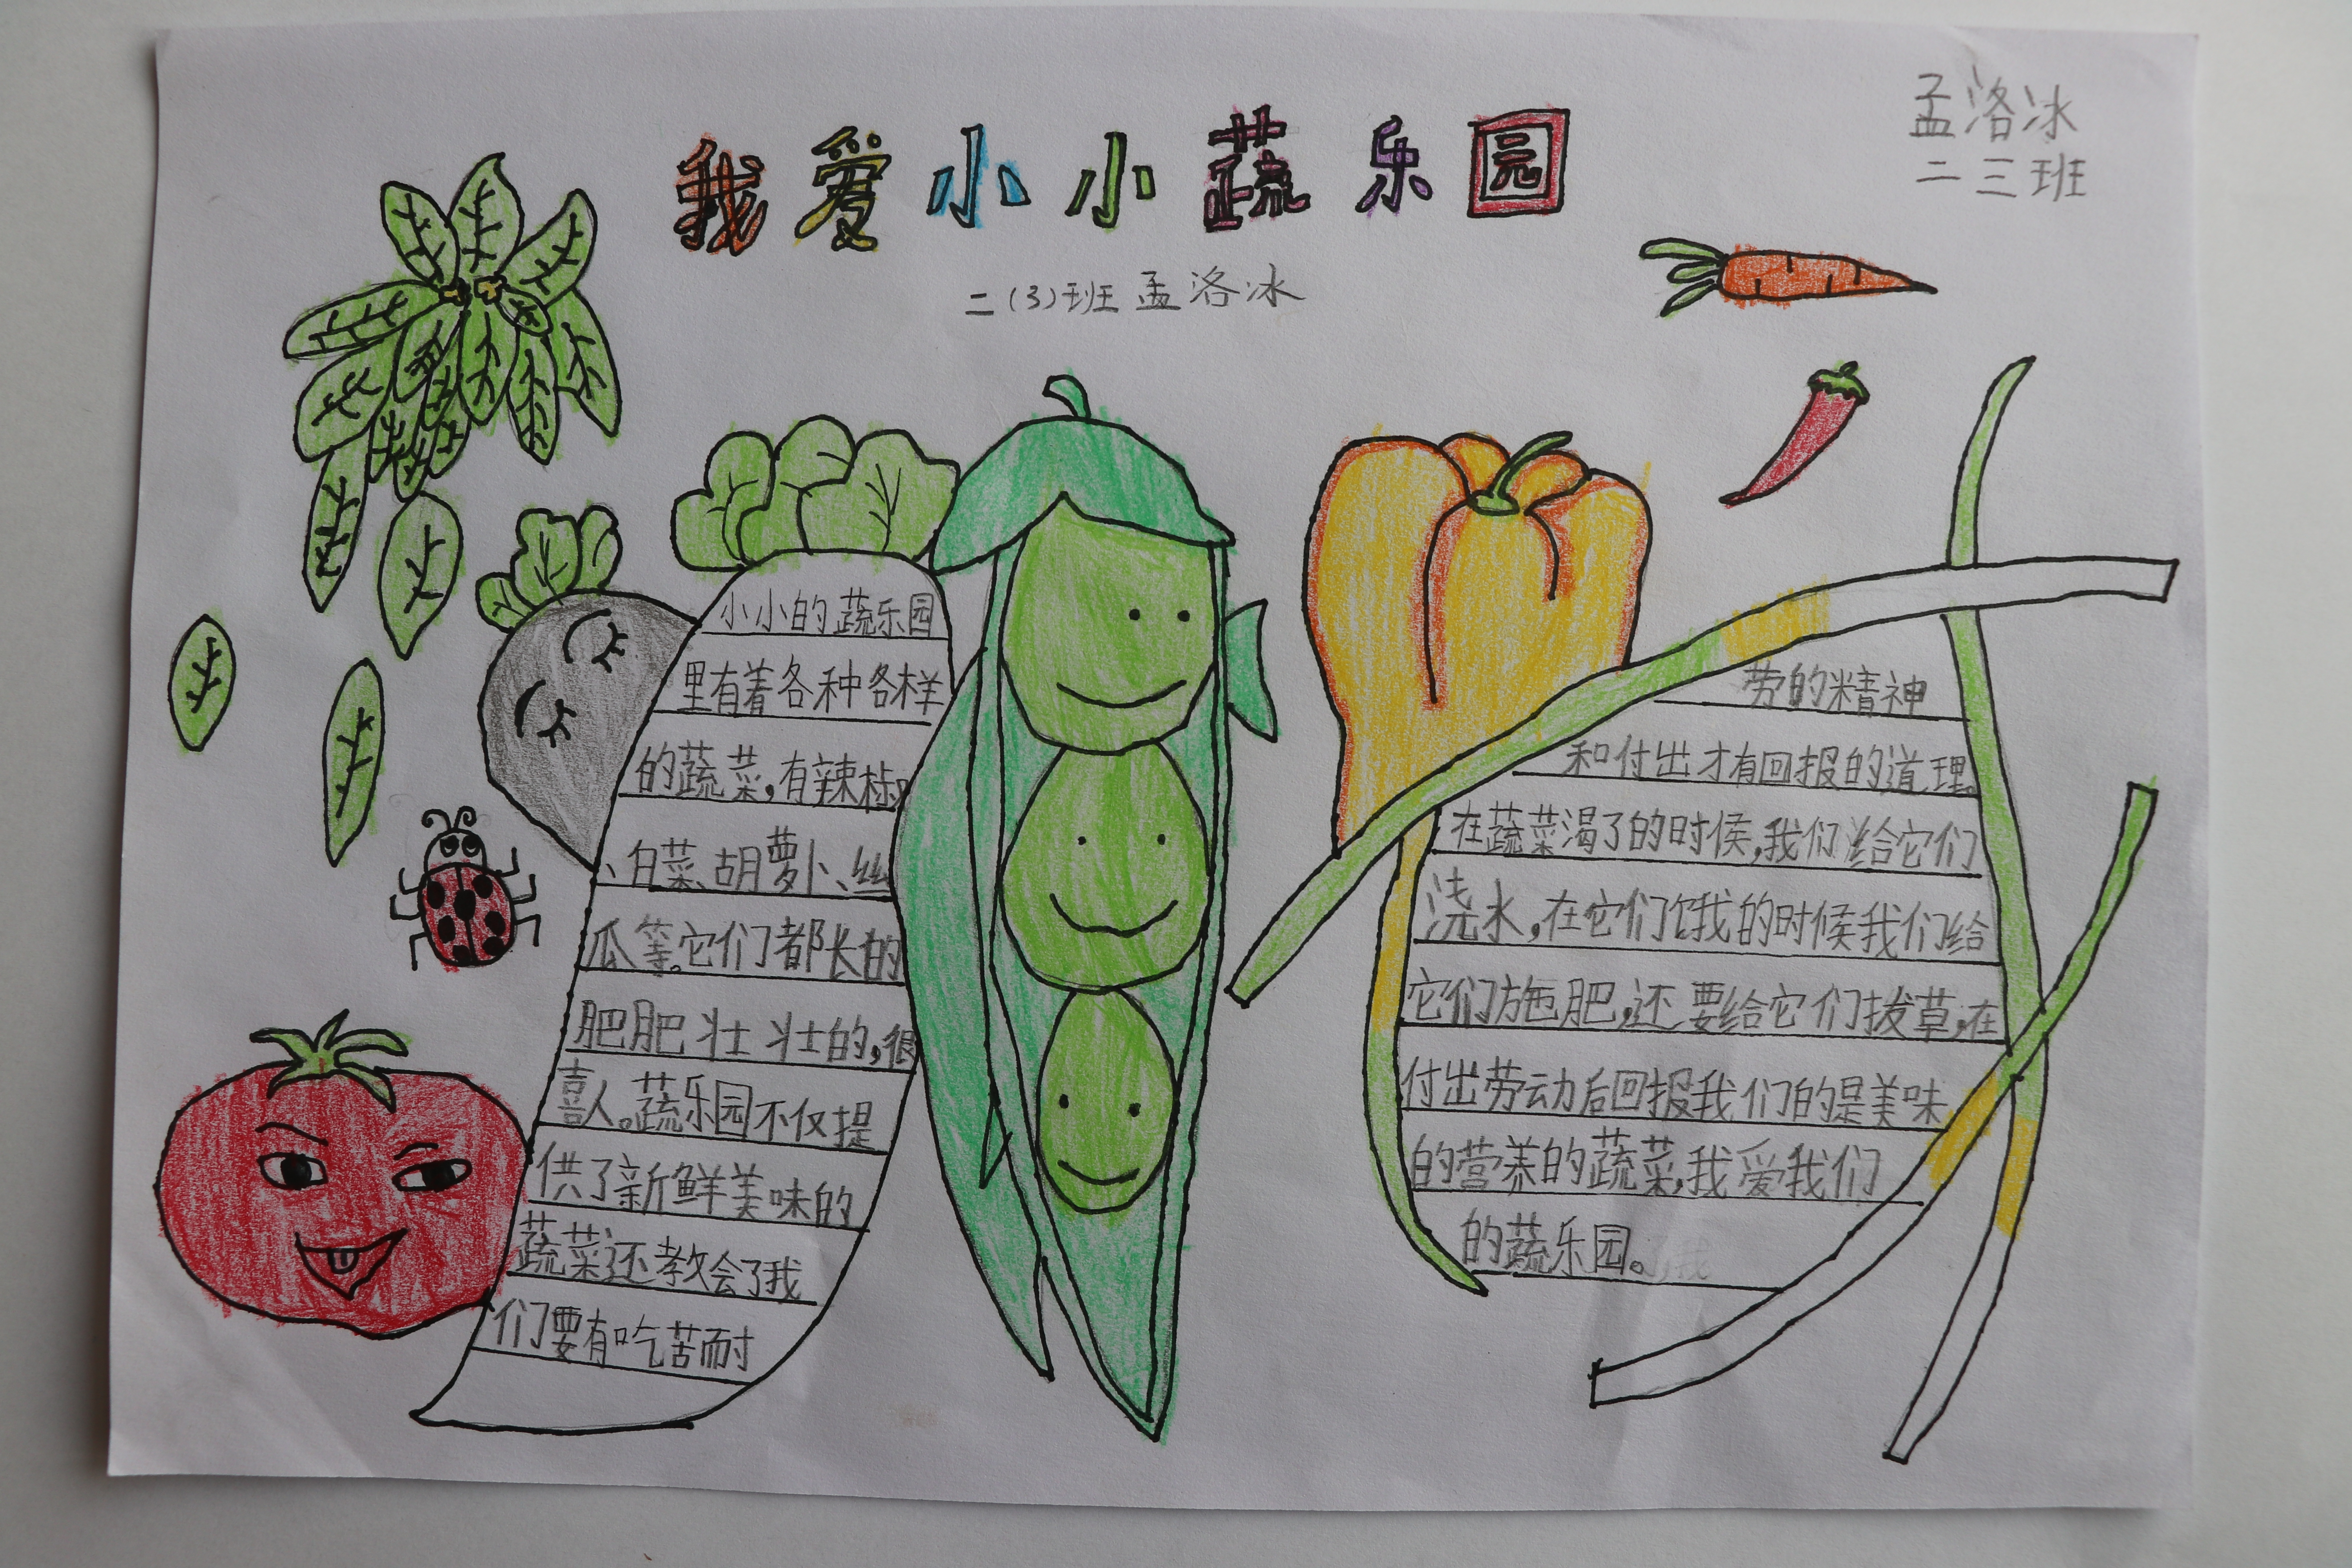 孟洛冰
二三班
我爱小小蔬乐园
二(3)班孟洛冰
小小的蔬乐园
里有着各种各样
的蔬菜,有辣椒
、白菜、胡萝卜、丝
瓜等。它们都长的
肥肥壮壮的,很
喜人。蔬乐园不仅提
供了新鲜美味的
蔬菜还教会了我
们要有吃苦耐
劳的精神
和付出才有回报的道理。
在蔬菜渴了的时候,我们给它们
浇水,在它们饿的时候我们给
它们施肥,还要给它们拔草,在
付出劳动后回报我们的是美味
的营养的蔬菜,我爱我们
的蔬乐园。